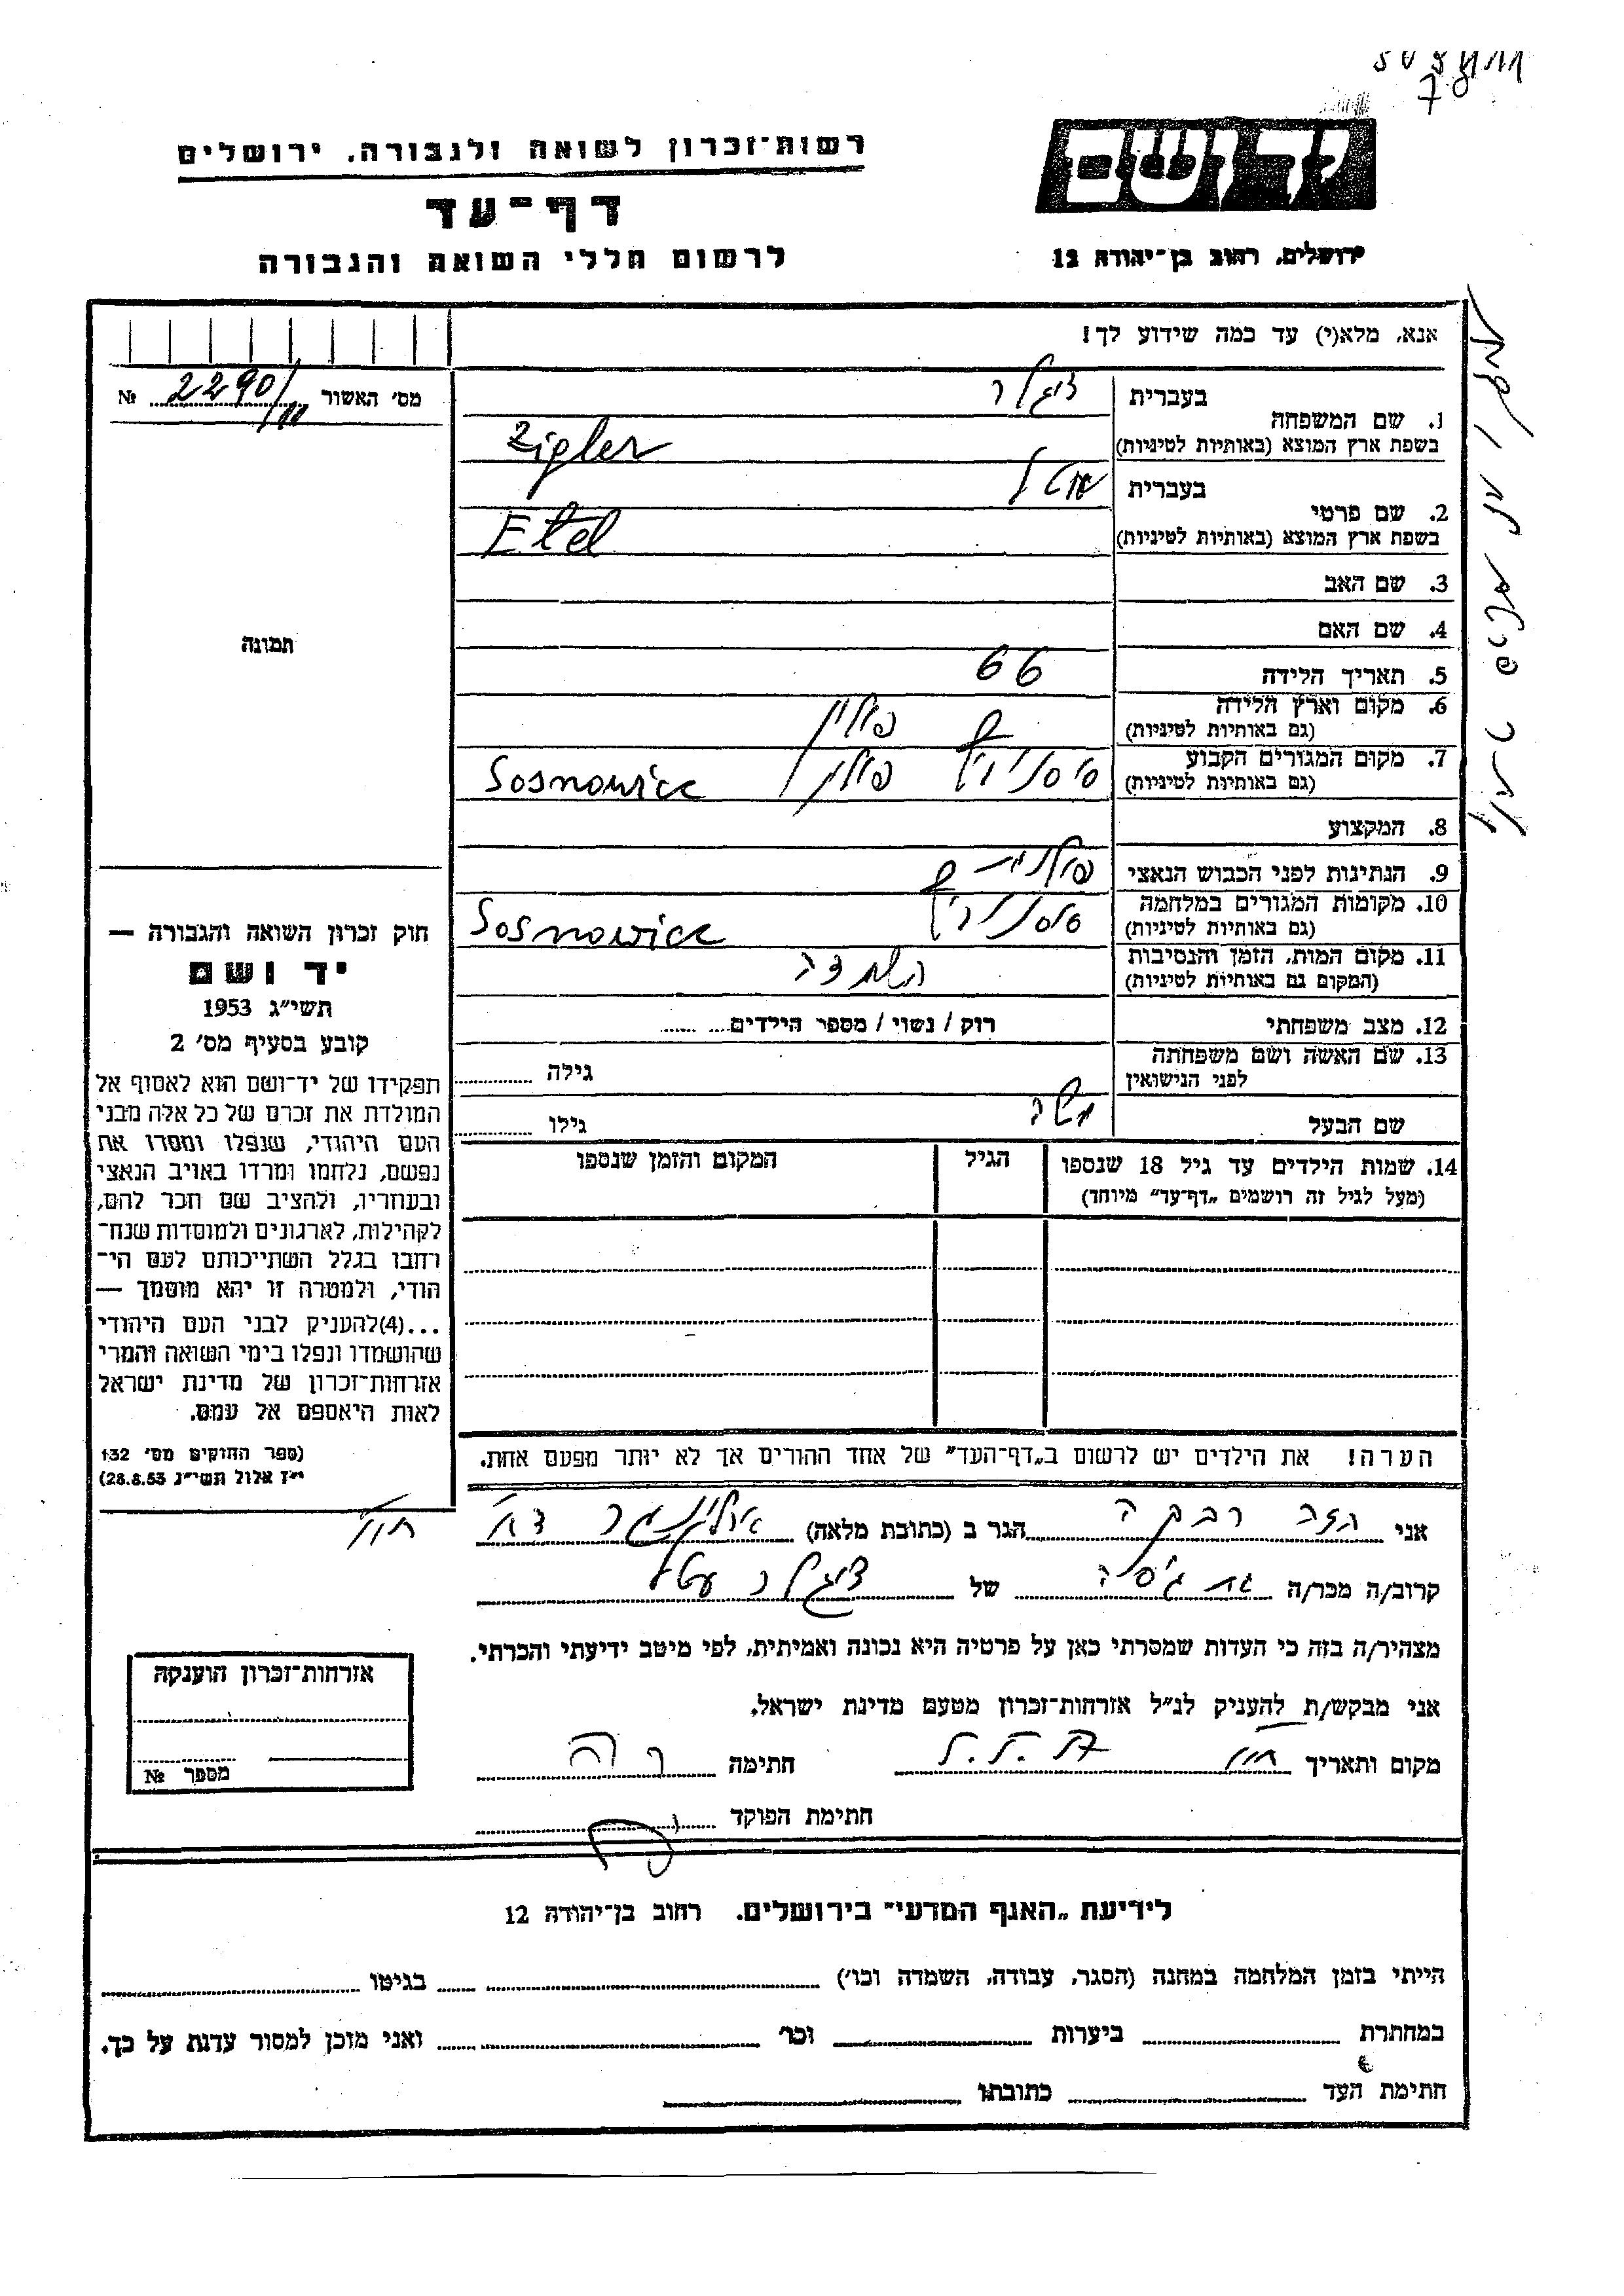 רשות־זכרון לשואה ולגבורה, ירושלים
דף־עד
לרשום חללי השואה והגבורה
יד ושם
ירושלים, רחוב בן־יהודה 12
אנא, מלא(י) עד כמה שידוע לך!
מס׳ האשור 2290/ №
תמונה
1. שם המשפחה
בעברית ציגלר
בשפת ארץ המוצא (באותיות לטיניות) Zigler
2. שם פרטי
בעברית
בשפת ארץ המוצא (באותיות לטיניות) Etel
3. שם האב
4. שם האם
5. תאריך הלידה 66
6. מקום וארץ הלידה פולין
(גם באותיות לטיניות)
7. מקום המגורים הקבוע פולין Sosnowicz
(גם באותיות לטיניות)
8. המקצוע
9. הנתינות לפני הכבוש הנאצי פולנית
10. מקומות המגורים במלחמה Sosnowicz
(גם באותיות לטיניות)
11. מקום המות, הזמן והנסיבות השמדה
(המקום גם באותיות לטיניות)
12. מצב משפחתי רוק / נשוי / מספר הילדים
13. שם האשה ושם משפחתה גילה
לפני הנישואין
שם הבעל משה גילו
14. שמות הילדים עד גיל 18 שנספו הגיל המקום והזמן שנספו
(מעל לגיל זה רושמים „דף־עד״ מיוחד)
הערה! את הילדים יש לרשום ב„דף־העד״ של אחד ההורים אך לא יותר מפעם אחת.
חוק זכרון השואה והגבורה —
יד ושם
תשי״ג 1953
קובע בסעיף מס׳ 2
תפקידו של יד־ושם הוא לאסוף אל
המולדת את זכרם של כל אלה מבני
העם היהודי, שנפלו ומסרו את
נפשם, נלחמו ומרדו באויב הנאצי
ובעוזריו, ולהציב שם וזכר להם,
לקהילות, לארגונים ולמוסדות שנח־
רחבו בגלל השתייכותם לעם הי־
הודי, ולמטרה זו יהא מוסמך —
...(4)להעניק לבני העם היהודי
שהושמדו ונפלו בימי השואה והמרי
אזרחות־זכרון של מדינת ישראל
לאות היאספם אל עמם.
(ספר החוקים מס׳ 132
י״ז אלול תשי״ג 28.8.53)
אני רבקה הגר ב (כתובת מלאה)
קרוב/ה מכר/ה של ציגלר עטל
מצהיר/ה בזה כי העדות שמסרתי כאן על פרטיה היא נכונה ואמיתית, לפי מיטב ידיעתי והכרתי.
אני מבקש/ת להעניק לנ״ל אזרחות־זכרון מטעם מדינת ישראל.
מקום ותאריך חתימה
חתימת הפוקד
אזרחות־זכרון הוענקה
מספר №
לידיעת „האגף המדעי״ בירושלים. רחוב בן־יהודה 12
הייתי בזמן המלחמה במחנה (הסגר, עבודה, השמדה וכו׳) בגיטו
במחתרת ביערות וכו׳ ואני מוכן למסור עדות על כך.
חתימת העד כתובתו